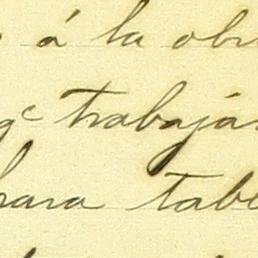 á la obr
qᵉ trabajár
para tabl